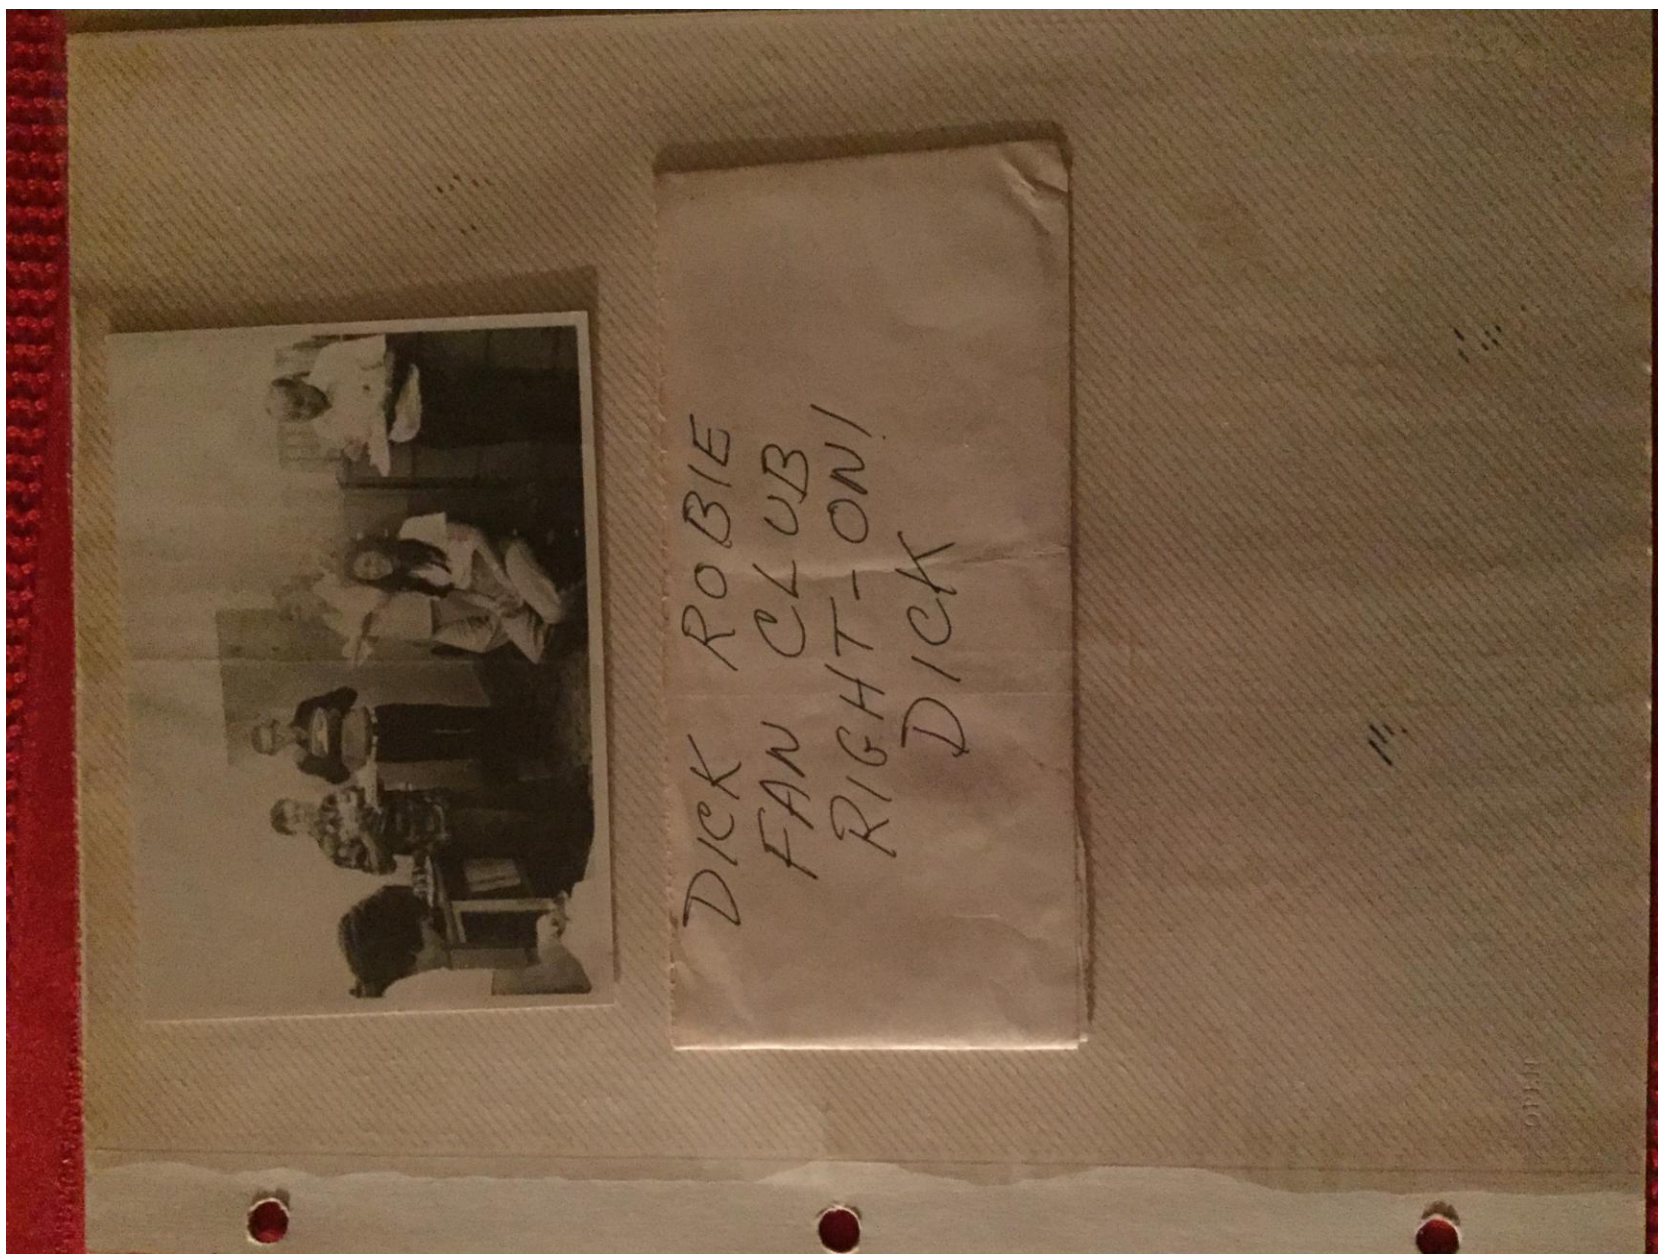 DICK ROBIE
FAN CLUB
RIGHT-ON!
DICK
OPEN